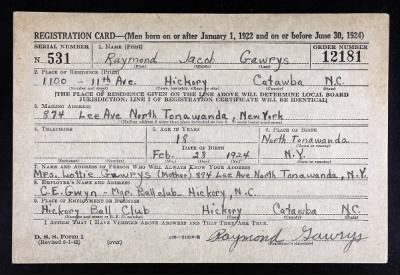 REGISTRATION CARD—(Men born on or after January 1, 1922 and on or before June 30, 1924)
SERIAL NUMBER 1. NAME (Print) ORDER NUMBER
N 531 Raymond Jacob Gawrys 12181
(First) (Middle) (Last)
2. PLACE OF RESIDENCE (Print)
1100 - 11th Ave. Hickory Catawba N.C.
(Number and street) (Town, township, village, or city) (County) (State)
[THE PLACE OF RESIDENCE GIVEN ON THE LINE ABOVE WILL DETERMINE LOCAL BOARD
JURISDICTION; LINE 2 OF REGISTRATION CERTIFICATE WILL BE IDENTICAL]
3. MAILING ADDRESS
874 Lee Ave North Tonawanda, New York
[Mailing address if other than place indicated on line 2. If same insert word same]
4. TELEPHONE 5. AGE IN YEARS 6. PLACE OF BIRTH
18 North Tonawanda
DATE OF BIRTH (Town or county)
Feb. 28 1924 N.Y.
(Exchange) (Number) (Mo.) (Day) (Yr.) (State or country)
7. NAME AND ADDRESS OF PERSON WHO WILL ALWAYS KNOW YOUR ADDRESS
Mrs. Lottie Gawrys (Mother) 874 Lee Ave North Tonawanda, N.Y.
8. EMPLOYER'S NAME AND ADDRESS
C.E. Gwyn - Mgr. Ball club - Hickory, N.C.
9. PLACE OF EMPLOYMENT OR BUSINESS
Hickory Ball Club Hickory Catawba N.C.
(Number and street or R. F. D. number) (Town) (County) (State)
I AFFIRM THAT I HAVE VERIFIED ABOVE ANSWERS AND THAT THEY ARE TRUE.
D. S. S. Form 1
(Revised 6-1-42) (over) Raymond Gawrys
(Registrant's signature)